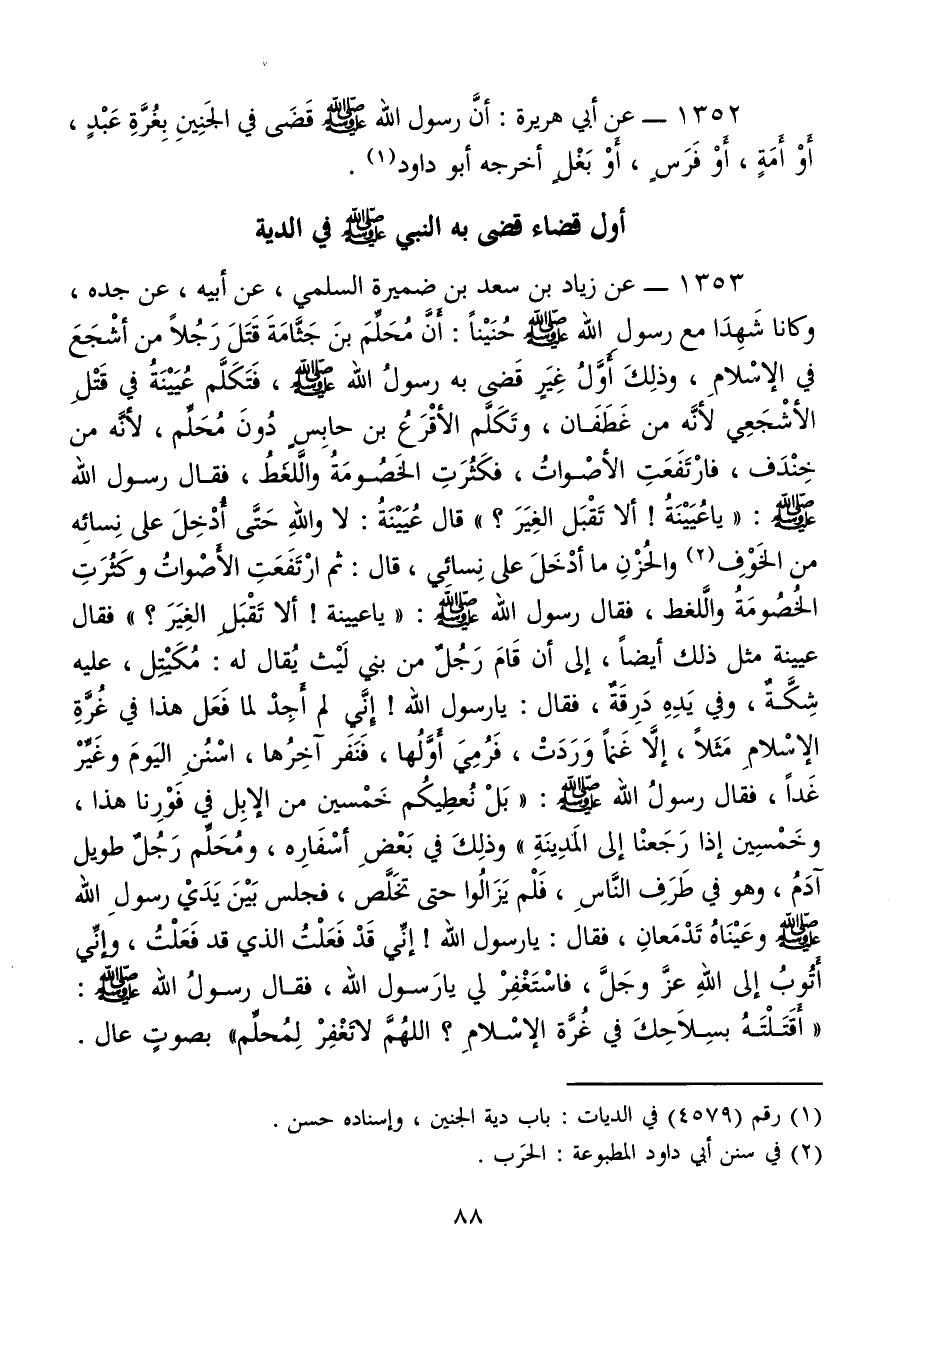 ١٣٥٢ ـ عن أبي هريرة : أنَّ رسول الله ﷺ قَضَى في الجَنِينِ بِغُرَّةِ عَبْدٍ ،
أَوْ أَمَةٍ ، أَوْ فَرَسٍ ، أَوْ بَغْلٍ أخرجه أبو داود(١) .
أول قضاء قضى به النبي ﷺ في الدية
١٣٥٣ ـ عن زياد بن سعد بن ضميرة السلمي ، عن أبيه ، عن جده ،
وكانا شَهِدَا مع رسولِ الله ﷺ حُنَيْناً : أَنَّ مُحَلِّمَ بنَ جَثَّامَةَ قَتَلَ رَجُلاً من أشْجَعَ
في الإسْلامِ ، وذلِكَ أَوَّلُ غِيَرٍ قَضى به رسولُ الله ﷺ ، فَتَكَلَّم عُيَيْنَةُ في قَتْلِ
الأشْجَعِي لأنَّه من غَطَفَـان ، وتَكَلَّم الأقْرَعُ بن حابِسٍ دُونَ مُحَلِّم ، لأنَّه من
خِنْدَف ، فارْتَفَعَتِ الأصْـواتُ ، فَكَثُرَتِ الخَصُـومَةُ واللَّغَطُ ، فقـال رسـول الله
ﷺ : « ياعُيَيْنَةُ ! ألا تَقْبَل الغِيَرَ ؟ » قال عُيَيْنَةُ : لا واللهِ حَتَّى أُدْخِلَ على نِسائِه
من الخَوْفِ(٢) والحُزْنِ ما أدْخَلَ على نِسائِي ، قال : ثم ارْتَفَعَتِ الأَصْواتُ وكَثُرَتِ
الخُصُومَةُ واللَّغط ، فقال رسول الله ﷺ : « ياعيينة ! ألا تَقْبَلِ الغِيَرَ ؟ » فقال
عيينة مثل ذلك أيضاً ، إلى أن قَامَ رَجُلٌ من بني لَيْث يُقال له : مُكَيْتِل ، عليه
شِكَّـةٌ ، وفي يَدِهِ دَرِقَةٌ ، فقال : يارسول الله ! إِنَّي لم أَجِدْ لما فَعَل هذا في غُرَّةِ
الإسْلامِ مَثَلاً ، إلَّا غَنَماً وَرَدَتْ ، فَرُمِيَ أَوَّلُها ، فَنَفَر آخِرُها ، اسْنُنِ اليَومَ وغَيِّرْ
غَداً ، فقال رسولُ الله ﷺ : « بَلْ نُعطِيكُم خَمْسين من الإبِل في فَوْرِنا هذا ،
وخَمْسِين إذا رَجَعنْا إلى المَدِينَةِ » وذلِكَ في بَعْضِ أسْفَارِه ، ومُحَلِّم رَجُلٌ طويل
آدَمُ ، وهو في طَرَفِ النَّاسِ ، فَلْم يَزَالُوا حتى تَخَلَّص ، فجلس بَيْنَ يَدَيْ رسولِ الله
ﷺ وعَيْنَاهُ تَدْمَعانِ ، فقال : يارسول الله ! إنِّي قَدْ فَعَلْتُ الذي قد فَعَلْتُ ، وإنِّي
أتُوبُ إلى اللهِ عزَّ وجَلَّ ، فاسْتَغْفِرْ لي يارَسـول الله ، فقـال رسـولُ الله ﷺ :
« أَقَتَـلْتَـهُ بسِـلاَحِكَ في غُرَّة الإسْـلامِ ؟ اللهُمَّ لاتَغْفِرْ لِمُحلِّم» بصوتٍ عال .
(١) رقم (٤٥٧٩) في الديات : باب دية الجنين ، وإسناده حسن .
(٢) في سنن أبي داود المطبوعة : الحَرَب .
٨٨